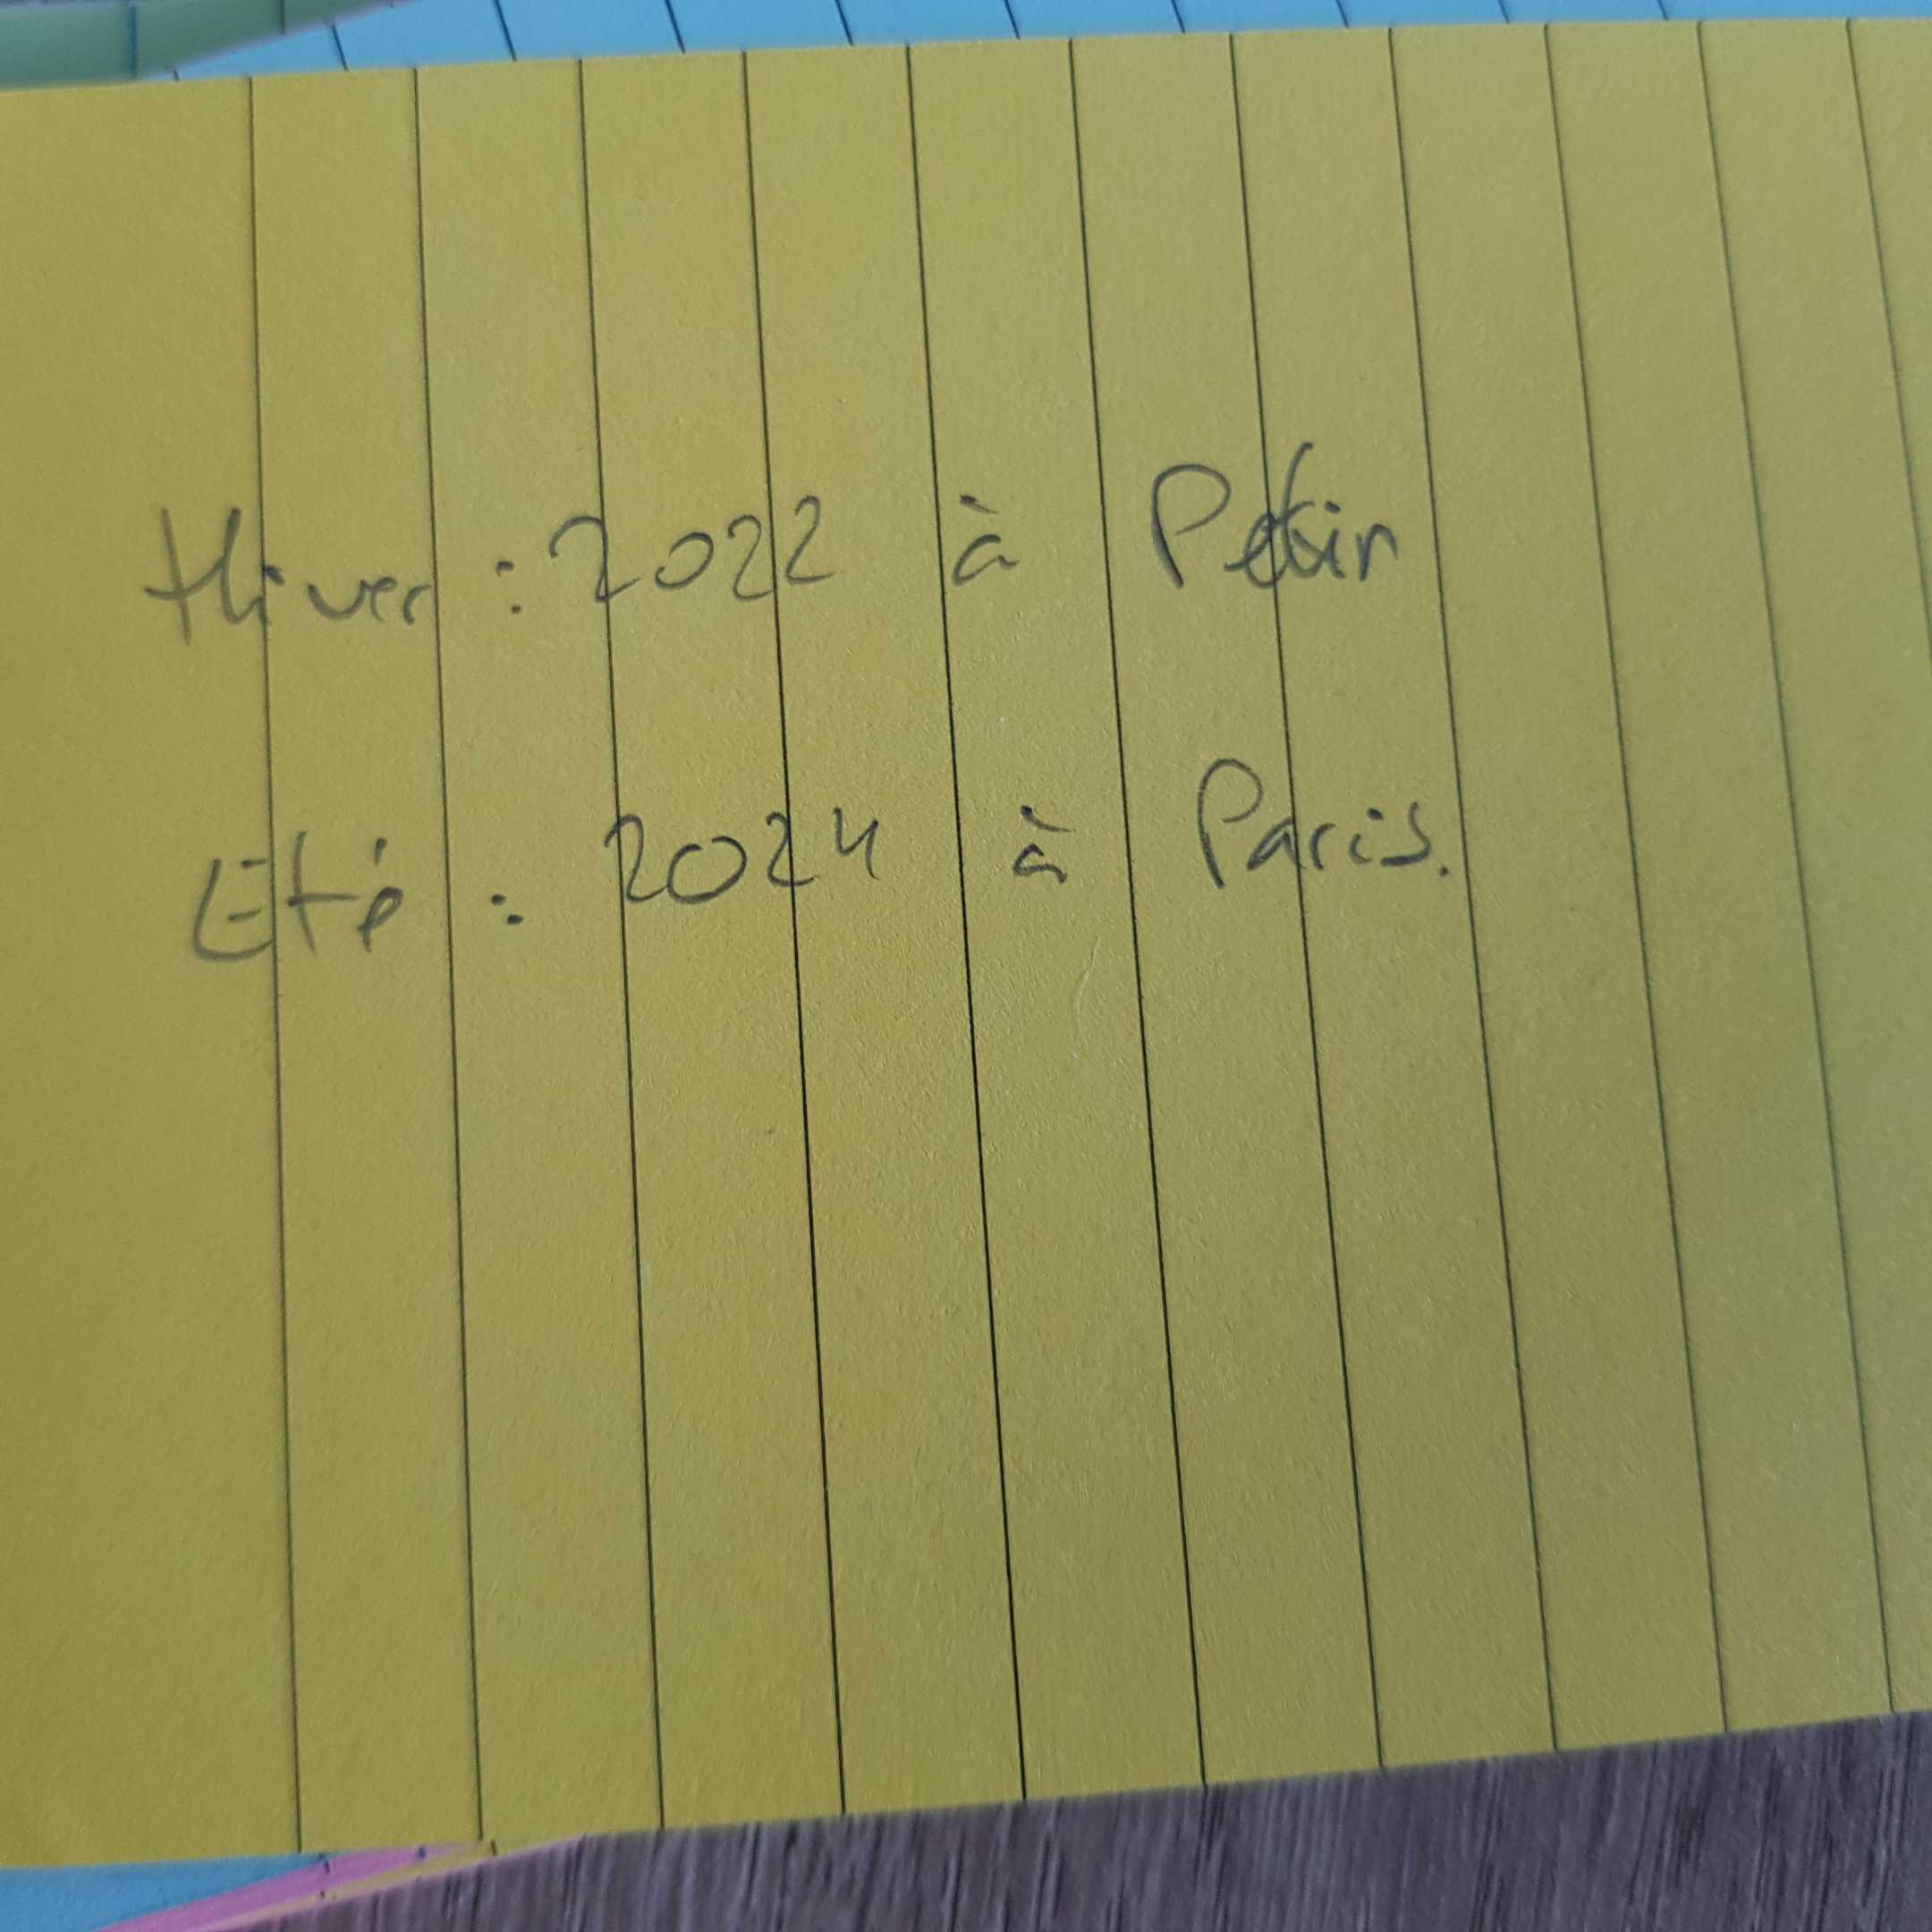 Hiver : 2022 à Pekin
Eté : 2024 à Paris.